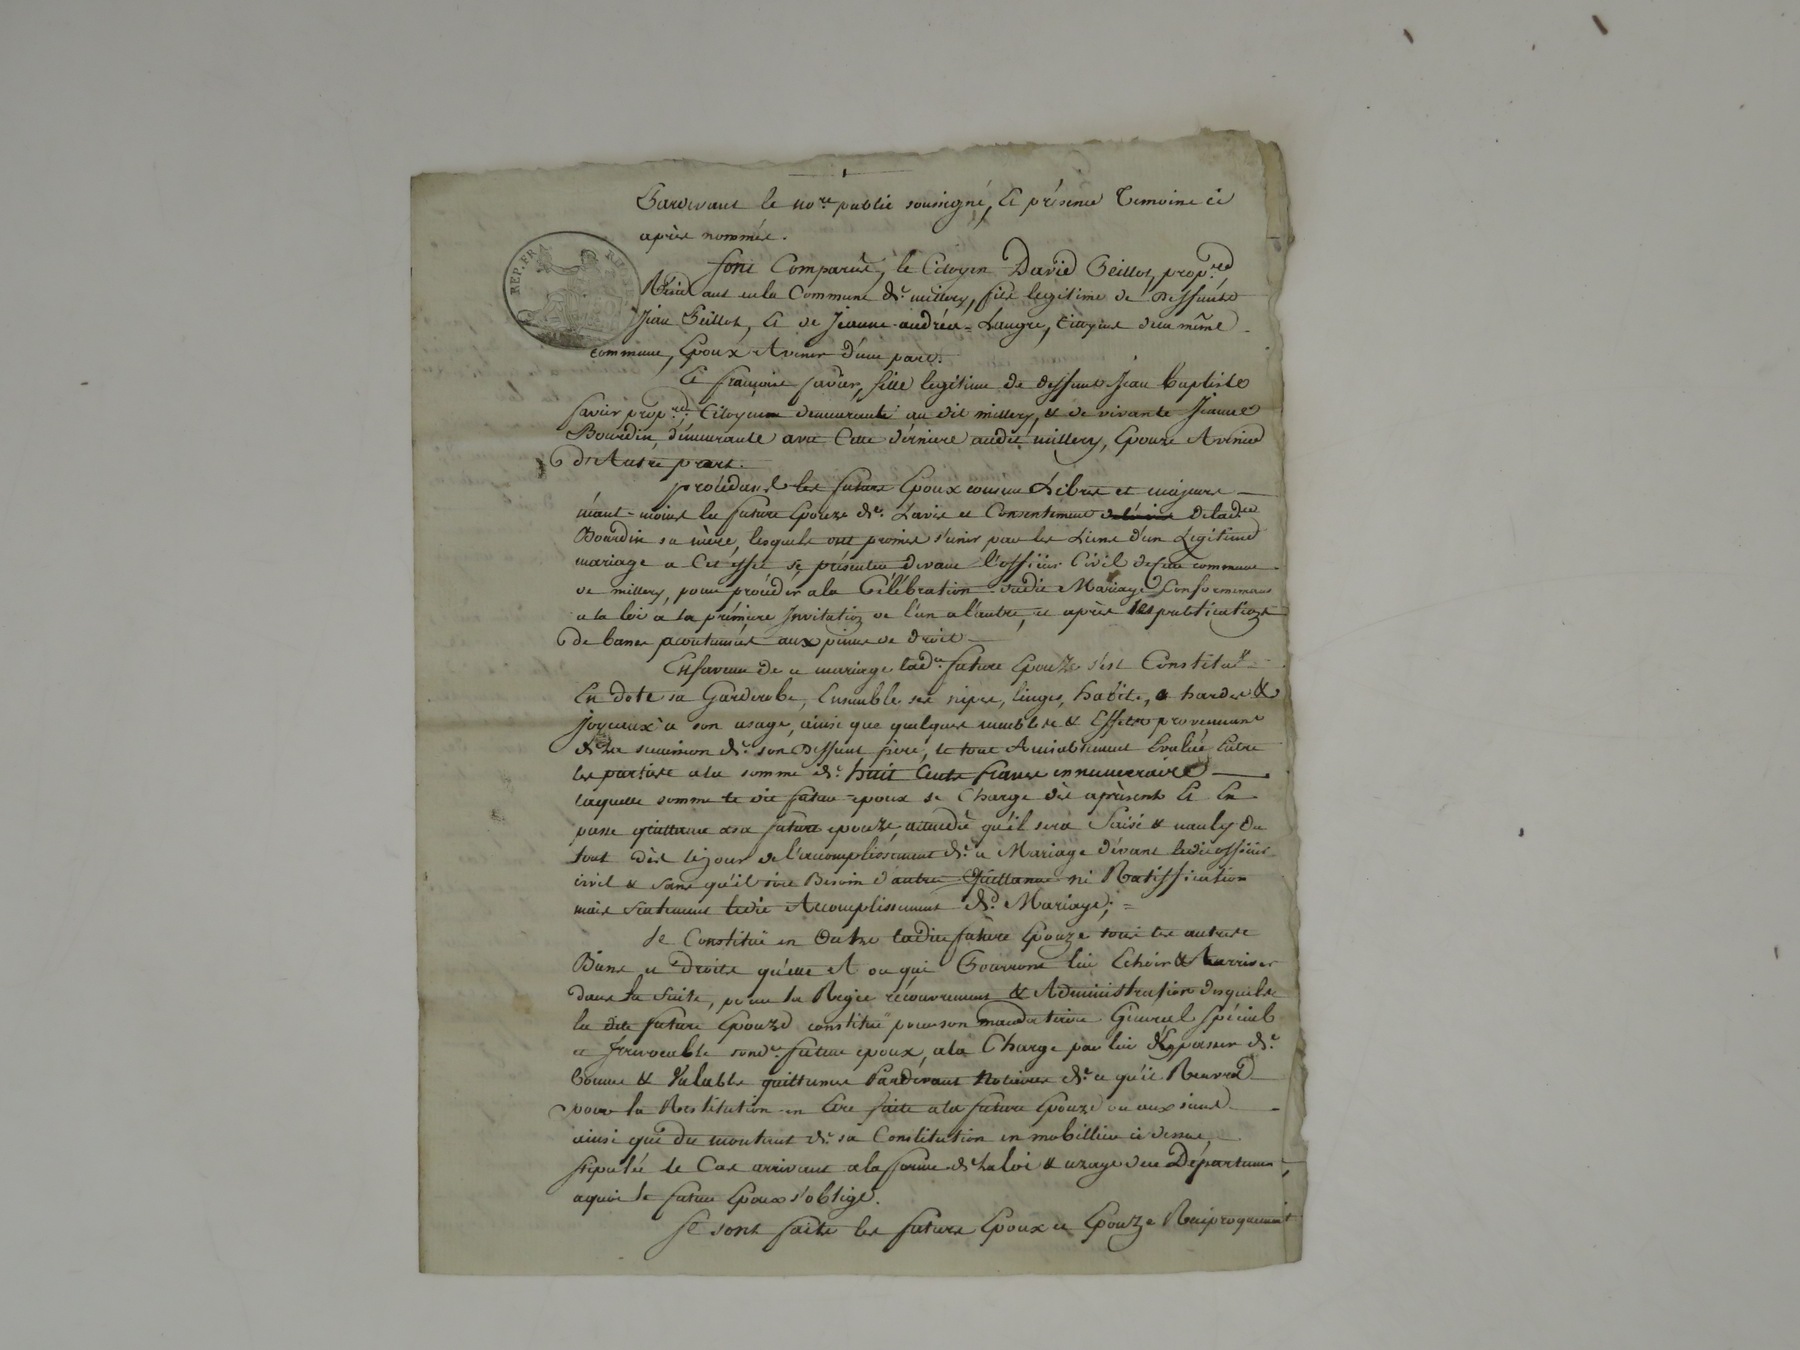 Pardevant le no.re public soussigné, Et présence Temoins ci
après nommés.
REP. FRA
font Comparus, le Citoyen David Peillot, prop.re
Résidant en la Commune de. millery, fils legitime de Deffunt
Jean Peillot, Et de Jeanne andréa Laugre, Citoyens de la même
commune, Epoux Avenir d'une part.
Et françoise favier, fille legitime de deffunt Jean baptiste
favier prop.re, Citoyenne demeurante au dit millery, & de vivante Jeanne
Bourdin, demeurante avec Cette dérniere audit millery, Epouze Avenir
d'Autre part.
procédant les futurs Epoux comme Libres et majeurs
néant-moins la future Epouze de. L'avis et Consentement de lad.te
Bourdin sa mère, lesquels ont promis s'unir par les Liens d'un Légitime
mariage a Cet effet se présenter devant l'officier Civil de cette commune
de millery, pour procéder a la Célébration dudit Mariage Conformément
a la loi a la prémiere Invitation de l'un a l'autre, et après les publications
de bans acoutumés aux peines de droit
En faveur de ce mariage lad.e future Epouze s'est Constituée
En dote sa Garderobe, Ensemble ses nipes, linges, habits, & hardes &
joyeaux a son usage, ainsi que quelques meubles & Effets provenant
de La succession de. son Deffunt père, le tout Amiablement Evalué Entre
les parties a la somme de. huit Cents francs en numeraire
laquelle somme le dit futur époux se Charge dès aprèsent Et En
passe quittance a sa future epouze, attendu qu'il sera Saisi & nanty du
tout dès le jour de l'accomplissement de. ce Mariage dévant ledit officier
civil & sans qu'il soit Besoin d'autre Quittance ni Ratiffication
mais seulement ledit Accomplissement de. Mariage;
Se Constitue en Outre ladite future Epouze tous les autres
Biens et Droits qu'elle A ou qui Pourront lui Echoir & Aarriver
dans la suite, pour la Régie recouvrement & Administration desquels
la dite future Epouze constitue pour son mandataire Géneral Spécial
et Irrevocable sond.t futur epoux, a la Charge par lui d'Epasser de.
bonnes & Valables quittances Pardévant Notaires de. ce qu'il Recevra
pour la Restitution en Etre faite a la future Epouze ou aux siens
ainsi que du montant de. sa Constitution en mobillier ci dessus
stipulée le Cas arrivant a la forme de La loi & uzage de ce Départemen.t,
a quoi le futur Epoux s'oblige.
Se sont faits les futurs Epoux et Epouze Réciproquement